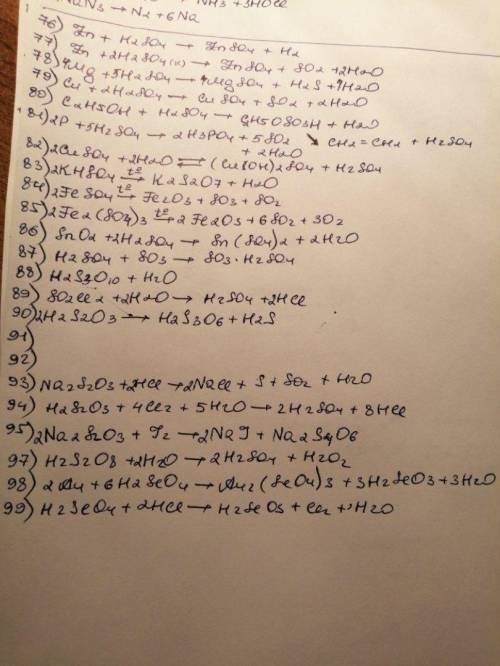 NH3 + 3HOCl
NaN3 → N2 + 6Na
76) Zn + H2SO4 → ZnSO4 + H2
77) Zn + 2H2SO4(к) → ZnSO4 + SO2 + 2H2O
78) 4Mg + 5H2SO4 → 4MgSO4 + H2S + 4H2O
79) Cu + 2H2SO4 → CuSO4 + SO2 + 2H2O
80) C2H5OH + H2SO4 → C2H5OSO3H + H2O
↘ CH2 = CH2 + H2SO4
81) 2P + 5H2SO4 → 2H3PO4 + 5SO2 + 2H2O
82) 2CuSO4 + 2H2O ⇌ (CuOH)2SO4 + H2SO4
83) 2KHSO4 t° → K2S2O7 + H2O
84) 2FeSO4 t° → Fe2O3 + SO3 + SO2
85) 2Fe2(SO4)3 t° → 2Fe2O3 + 6SO2 + 3O2
86) SnO2 + 2H2SO4 → Sn(SO4)2 + 2H2O
87) H2SO4 + SO3 → SO3·H2SO4
88) H2S3O10 + H2O
89) SO2Cl2 + 2H2O → H2SO4 + 2HCl
90) 2H2S2O3 → H2S3O6 + H2S
91)
92)
93) Na2S2O3 + 2HCl → 2NaCl + S + SO2 + H2O
94) H2S2O3 + 4Cl2 + 5H2O → 2H2SO4 + 8HCl
95) 2Na2S2O3 + I2 → 2NaI + Na2S4O6
97) H2S2O8 + 2H2O → 2H2SO4 + H2O2
98) 2Au + 6H2SeO4 → Au2(SeO4)3 + 3H2SeO3 + 3H2O
99) H2SeO4 + 2HCl → H2SeO3 + Cl2 + H2O